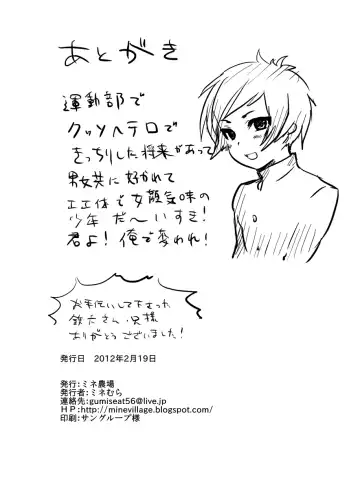 あとがき
運動部で
クッソヘテロで
きっちりした将来があって
男女共に好かれて
エエ体で女顔気味の
少年だ～いすき!
君よ!俺で変われ!
お手伝いして下さった
鉄六さん・兄様
ありがとうございました!
発行日 2012年2月19日
発行:ミネ農場
発行者:ミネむら
連絡先:gumiseat56@live.jp
ＨＰ:http://minevillage.blogspot.com/
印刷:サングループ様